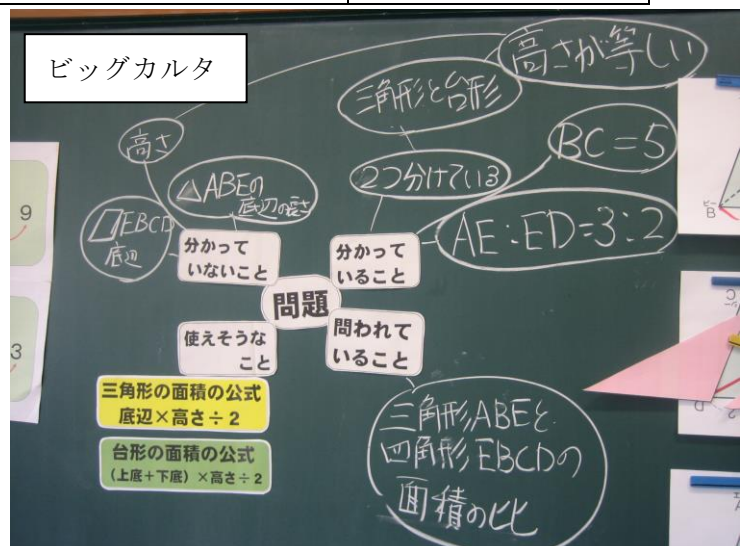 ビッグカルタ
高さが等しい
三角形と台形
高さ
BC=5
△ABEの
底辺の長さ
2つ分けている
EBCD
底辺
AE:ED=3:2
分かって
いないこと
分かって
いること
問題
使えそうな
こと
問われて
いること
三角形の面積の公式
底辺×高さ÷2
台形の面積の公式
(上底+下底)×高さ÷2
三角形ABEと
四角形EBCDの
面積の比
9
3
ビー
B
D
2